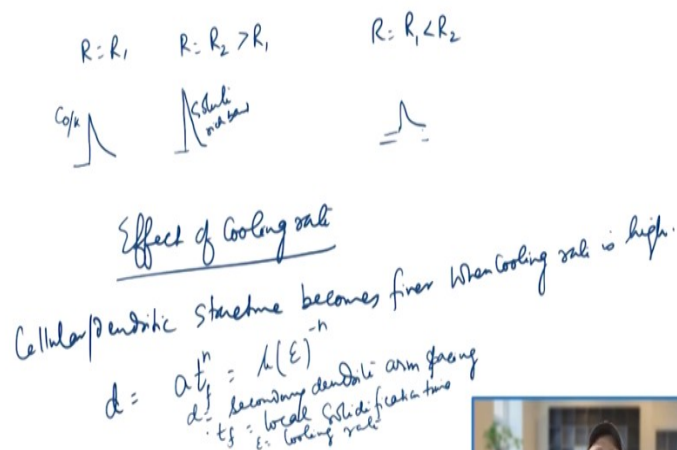 R=R₁ R=R₂>R₁ R=R₁<R₂
C₀/k solute
rich band
Effect of Cooling rate
Cellular/Dendritic structure becomes finer when cooling rate is high.
d = at_f^n = b(ε)^-n
d = secondary dendrite arm spacing
t_f = local solidification time
ε = Cooling rate